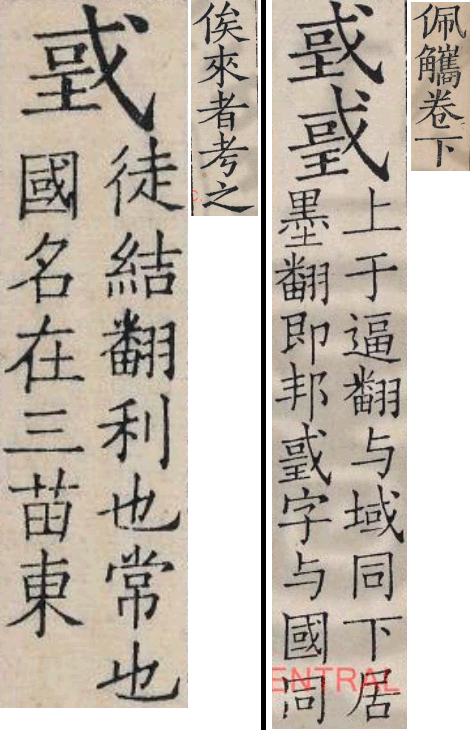 戜
徒結翻利也常也
國名在三苗東
俟來者考之
上于逼翻与域同下居
墨翻即邦戜字与國同
佩觿卷下
ENTRAL